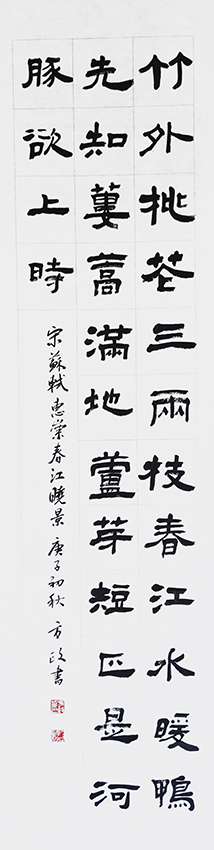 竹外桃花三兩枝春江水暖鴨
先知蔞蒿滿地蘆芽短正是河
豚欲上時
宋蘇軾惠崇春江曉景 庚子初秋 方政書